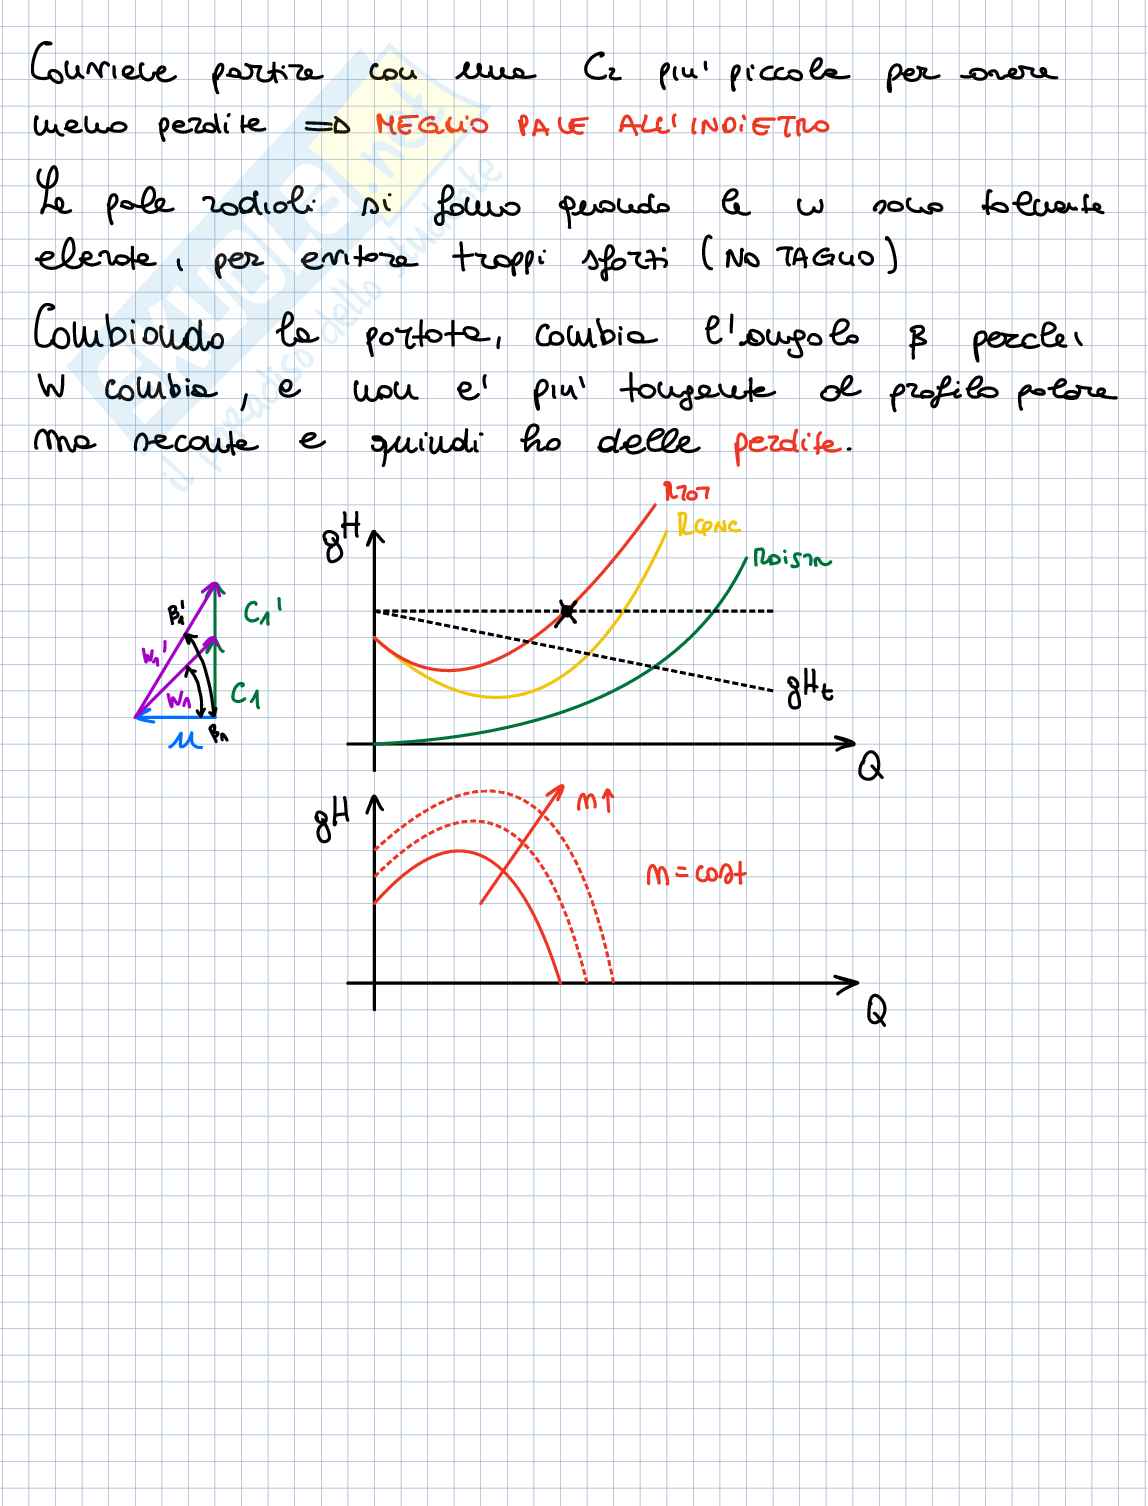 Conviene partire con una C2 piu' piccola per avere
meno perdite => MEGLIO PALE ALL'INDIETRO
Le pale radiali si fanno quando le w sono talmente
elevate, per evitare troppi sforzi (NO TAGLIO)
Cambiando la portata, cambia l'angolo β perche'
W cambia, e non e' piu' tangente al profilo palare
ma secante e quindi ho delle perdite.
RTOT
gH
RCONC
RDISTR
β1'
C1'
W1'
W1
C1
gHt
u
β1
Q
gH
n↑
n = cost
Q
SKUOLA.net
il paradiso dello studente